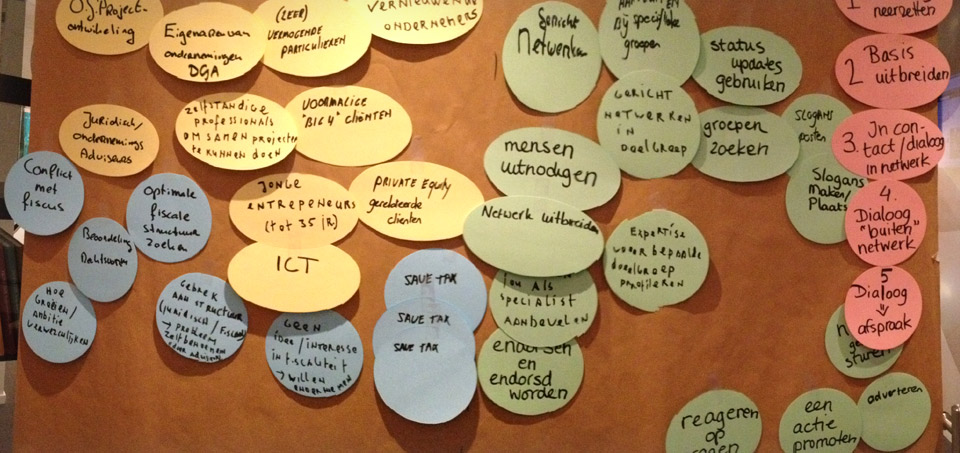 O.G. Project-
ontwikkeling
Eigenaren van
ondernemingen
DGA
(ZEER)
VERMOGENDE
PARTICULIEREN
VERNIEUWENDE
ONDERNEMERS
Juridisch/
ondernemings
Adviseurs
ZELFSTANDIGE
PROFESSIONALS
OM SAMEN PROJECTEN
TE KUNNEN DOEN
VOORMALIGE
"BIG 4" CLIËNTEN
JONGE
ENTREPENEURS
(tot 35 jR)
PRIVATE Equity
gerelateerde
cliënten
ICT
Conflict
met
fiscus
Optimale
fiscale
structuur
zoeken
Beoordeling
HOE
GROEIEN/
AMBITIE
VERWEZENLIJKEN
GEBREK
AAN STRUCTUUR
(JURIDISCH/FISCAAL)
→ PROBLEEM
GEEN
idee/INTERESSE
IN FISCALITEIT
→ WILLEN
ONDERNEMEN
SAVE TAX
SAVE TAX
SAVE TAX
Gericht
Netwerken
Bij specifieke
groepen
status
updates
gebruiken
GERICHT
NETWERKEN
IN
DOELGROEP
groepen
zoeken
SLOGANS
posten
Slogans
Maken/
Plaats
mensen
uitnodigen
Netwerk uitbreiden
EXPERTISE
VOOR BEPAALDE
DOELGROEP
PROFILEREN
JOU ALS
SPECIALIST
AANBEVELEN
endorsen
en
endorsd
worden
sturen
reageren
op
een
actie
promoten
adverteren
1
neerzetten
2 Basis
uitbreiden
3. In con-
tact/dialoog
in netwerk
4.
Dialoog
"buiten"
netwerk
5
Dialoog
⇓
afspraak